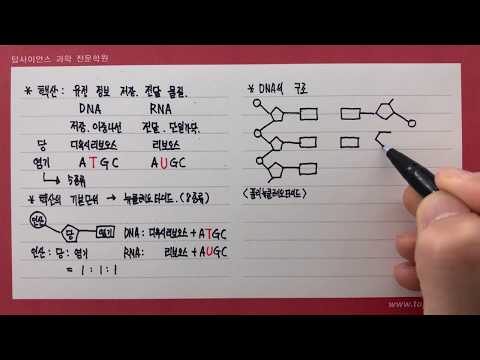 탑사이언스 과학 전문학원
* 핵산 : 유전 정보 저장. 전달 물질.
DNA RNA
저장. 이중나선 전달. 단일가닥.
당 디옥시리보오스 리보오스
염기 ATGC AUGC
5종류
* 핵산의 기본단위 → 뉴클레오타이드. (8종류)
인산 당 염기
DNA : 디옥시리보오스 + ATGC
RNA : 리보오스 + AUGC
인산 : 당 : 염기
= 1 : 1 : 1
* DNA의 구조
<폴리뉴클레오타이드>
www.to